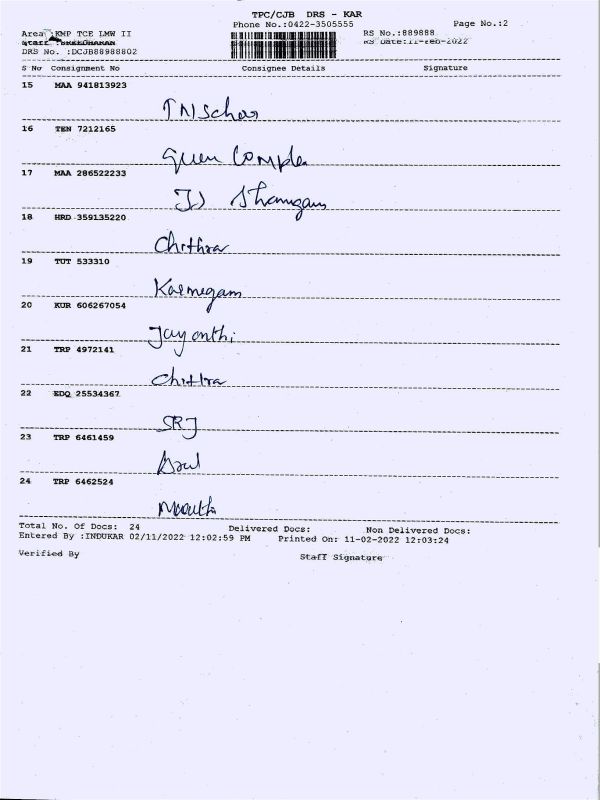 TPC/CJB DRS - KAR
Phone No.:0422-3505555 Page No.:2
Area :KMP TCE LMW II RS No.:889888
Staff :SREEDHARAN RS Date:11-Feb-2022
DRS No. :DCJB88988802
S No Consignment No Consignee Details Signature
15 MAA 941813923
16 TEN 7212165
17 MAA 286522233
Shanmgam
18 HRD 359135220
Chithra
19 TUT 533310
Karmegam
20 KUR 606267054
Jayanthi
21 TRP 4972141
Chithra
22 EDQ 25534367
SRJ
23 TRP 6461459
24 TRP 6462524
Total No. Of Docs: 24 Delivered Docs: Non Delivered Docs:
Entered By :INDUKAR 02/11/2022 12:02:59 PM Printed On: 11-02-2022 12:03:24
Verified By Staff Signature